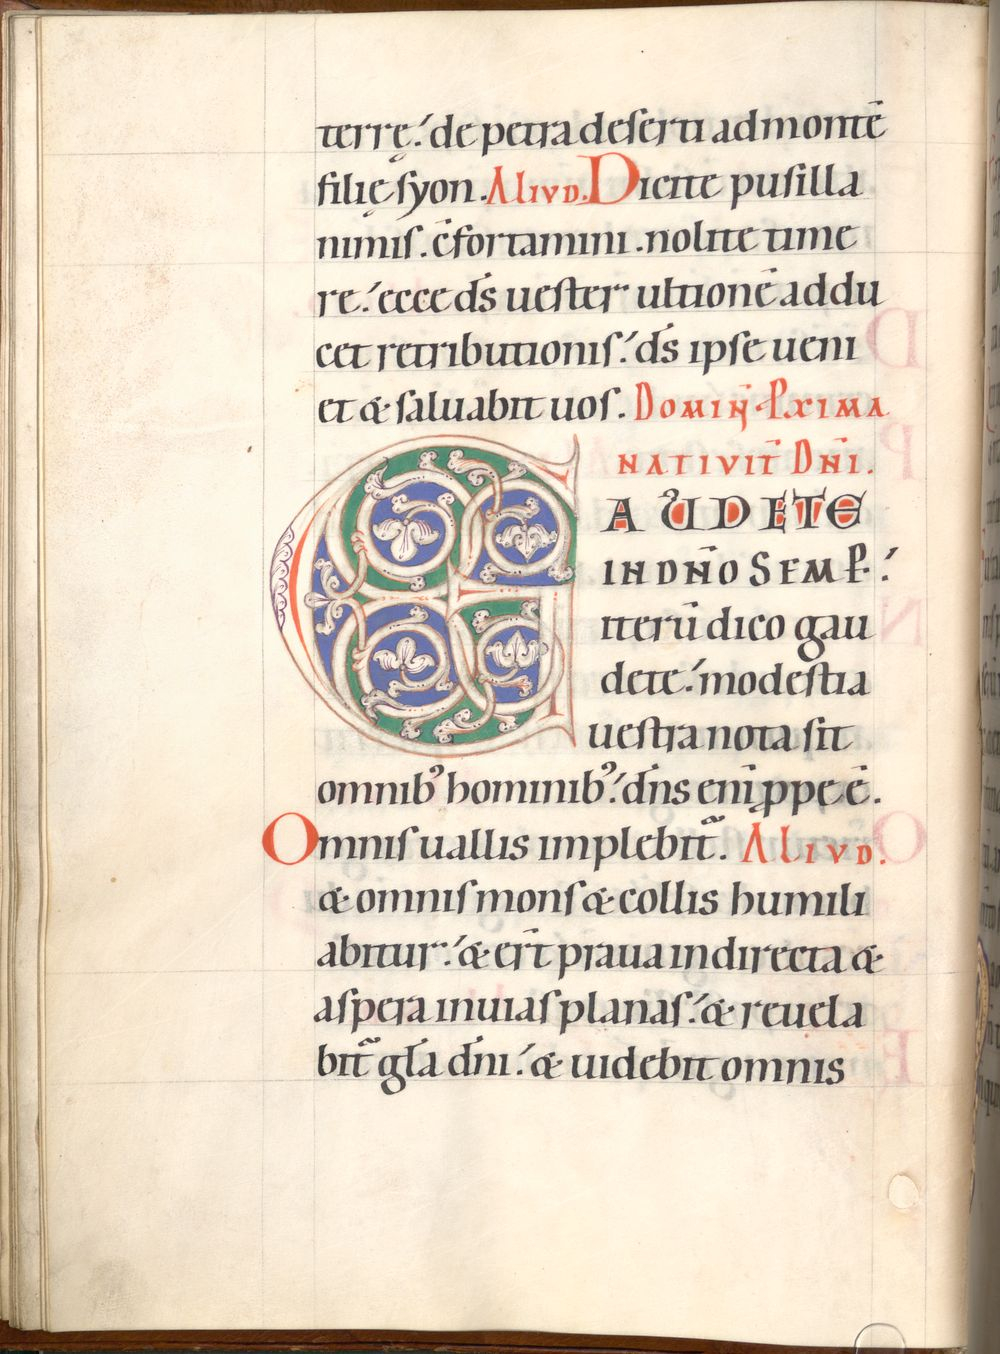 terrę. de petra deserti ad montē
filię syon. Aliud. Dicite pusilla
nimis. cf̄ortamini. nolite time
re. ecce ds̄ uester ultionē addu
cet retributionis. ds̄ ipse ueni
et & saluabit uos. Domin̄. Pxima
natiuit̄ Dn̄i.
GAUDETE
IN DN̄O SEMP.
iterū dico gau
dete. modestia
uestra nota sit
omnibꝰ hominibꝰ. dn̄s eni̅ ꝓpe ē.
Omnis uallis implebit᷑. Aliud.
& omnis mons & collis humili
abitur. & er̄t praua in directa &
aspera in uias planas. & reuela
bit᷑ gl̄a dn̄i. & uidebit omnis